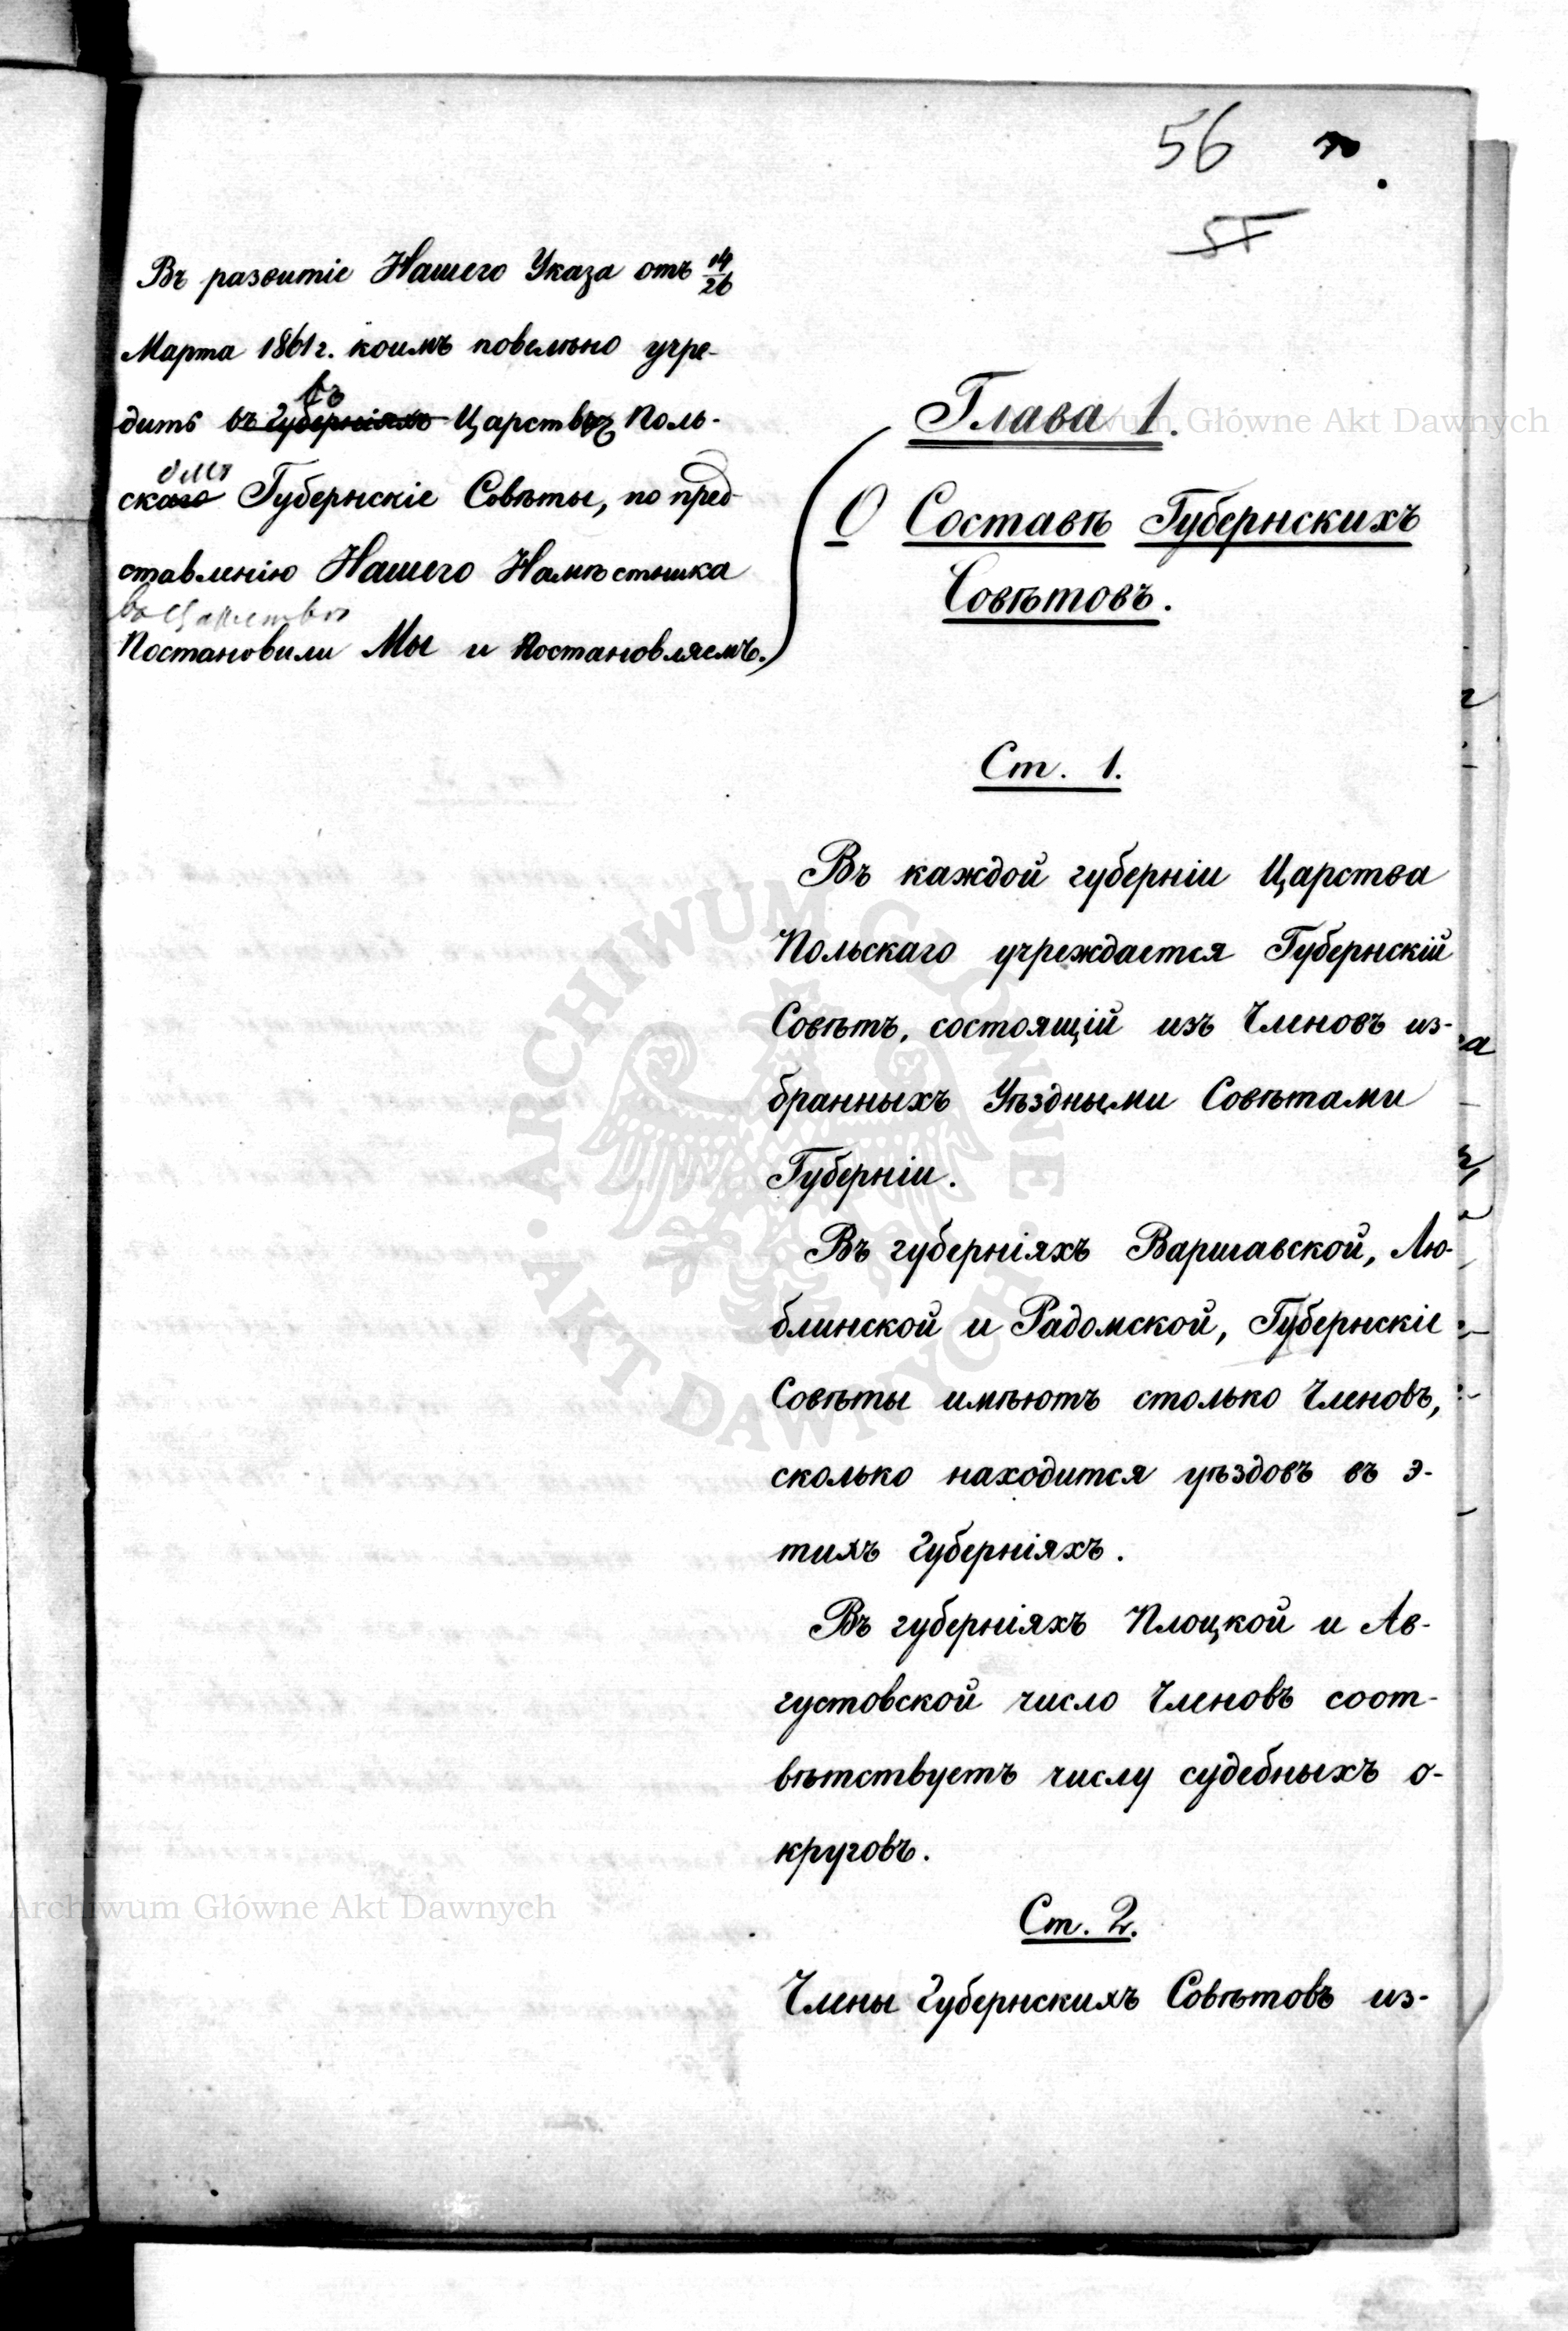 56
Въ развитіе Нашего Указа отъ 14/26
Марта 1861 г. коимъ повелѣно учре-
въ
дить въ Губерніяхъ Царствѣ Поль-
омъ
скаго Губернскіе Совѣты, по пред-
ставленію Нашего Намѣстника
въ Царствѣ
Постановили Мы и Постановляемъ.
Глава 1.
О Составѣ Губернскихъ
Совѣтовъ.
Ст. 1.
Въ каждой губерніи Царства
Польскаго учреждается Губернскій
Совѣтъ, состоящій изъ Членовъ из-
бранныхъ Уѣздными Совѣтами
Губерніи.
Въ губерніяхъ Варшавской, Лю-
блинской и Радомской, Губернскіе
Совѣты имѣютъ столько Членовъ,
сколько находится уѣздовъ въ э-
тихъ Губерніяхъ.
Въ губерніяхъ Плоцкой и Ав-
густовской число Членовъ соот-
вѣтствуетъ числу судебныхъ о-
круговъ.
Ст. 2.
Члены Губернскихъ Совѣтовъ из-
Archiwum Główne Akt Dawnych
ARCHIWUM GŁÓWNE
AKT DAWNYCH
Archiwum Główne Akt Dawnych